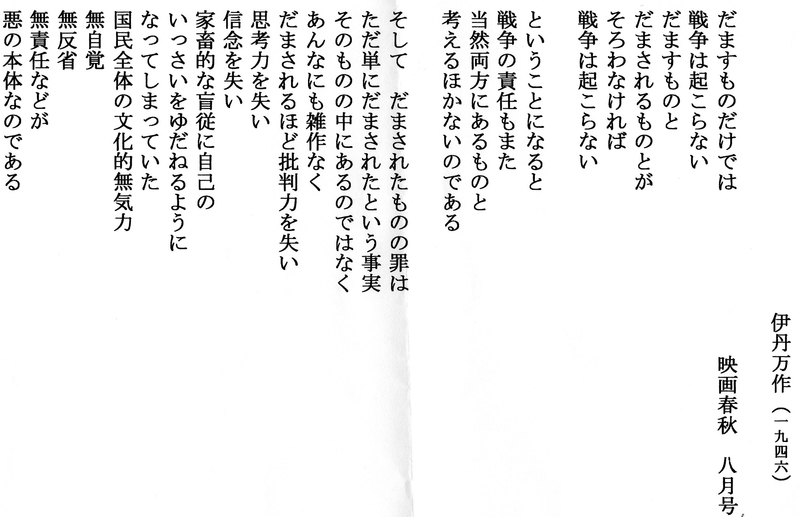 伊丹万作(一九四六)
映画春秋 八月号
だますものだけでは
戦争は起こらない
だますものと
だまされるものとが
そろわなければ
戦争は起こらない
ということになると
戦争の責任もまた
当然両方にあるものと
考えるほかないのである
そして だまされたものの罪は
ただ単にだまされたという事実
そのものの中にあるのではなく
あんなにも雑作なく
だまされるほど批判力を失い
思考力を失い
信念を失い
家畜的な盲従に自己の
いっさいをゆだねるように
なってしまっていた
国民全体の文化的無気力
無自覚
無反省
無責任などが
悪の本体なのである